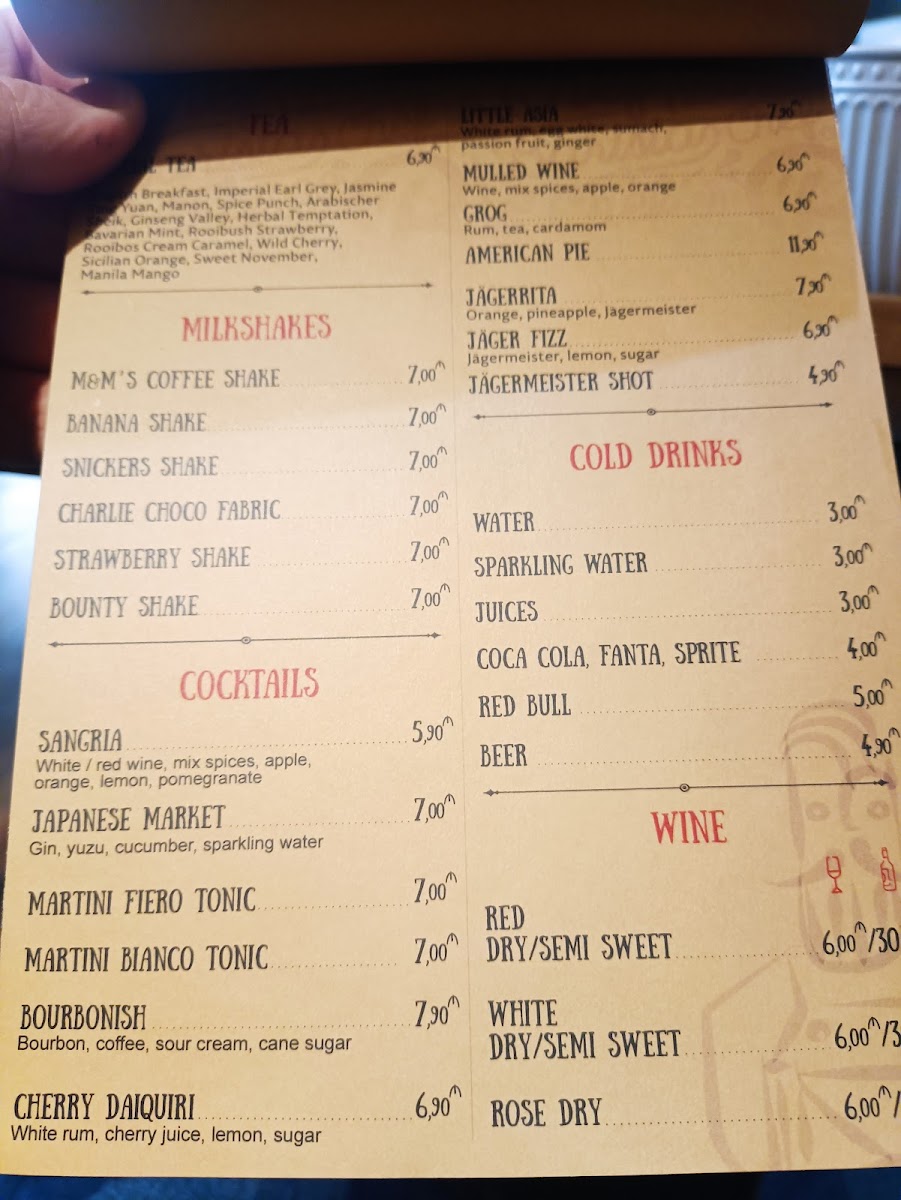 TEA
TEA 6,90₼
Breakfast, Imperial Earl Grey, Jasmine
Yuan, Manon, Spice Punch, Arabischer
Ginseng Valley, Herbal Temptation,
Bavarian Mint, Rooibush Strawberry,
Rooibos Cream Caramel, Wild Cherry,
Sicilian Orange, Sweet November,
Manila Mango
MILKSHAKES
M&M'S COFFEE SHAKE 7,00₼
BANANA SHAKE 7,00₼
SNICKERS SHAKE 7,00₼
CHARLIE CHOCO FABRIC 7,00₼
STRAWBERRY SHAKE 7,00₼
BOUNTY SHAKE 7,00₼
COCKTAILS
SANGRIA 5,90₼
White / red wine, mix spices, apple,
orange, lemon, pomegranate
JAPANESE MARKET 7,00₼
Gin, yuzu, cucumber, sparkling water
MARTINI FIERO TONIC 7,00₼
MARTINI BIANCO TONIC 7,00₼
BOURBONISH 7,90₼
Bourbon, coffee, sour cream, cane sugar
CHERRY DAIQUIRI 6,90₼
White rum, cherry juice, lemon, sugar
LITTLE ASIA 7,90₼
White rum, egg white, sumach,
passion fruit, ginger
MULLED WINE 6,90₼
Wine, mix spices, apple, orange
GROG 6,90₼
Rum, tea, cardamom
AMERICAN PIE 11,90₼
JÄGERRITA 7,90₼
Orange, pineapple, Jägermeister
JÄGER FIZZ 6,90₼
Jägermeister, lemon, sugar
JÄGERMEISTER SHOT 4,90₼
COLD DRINKS
WATER 3,00₼
SPARKLING WATER 3,00₼
JUICES 3,00₼
COCA COLA, FANTA, SPRITE 4,00₼
RED BULL 5,00₼
BEER 4,90₼
WINE
RED
DRY/SEMI SWEET 6,00₼/30
WHITE
DRY/SEMI SWEET 6,00₼/3
ROSE DRY 6,00₼/